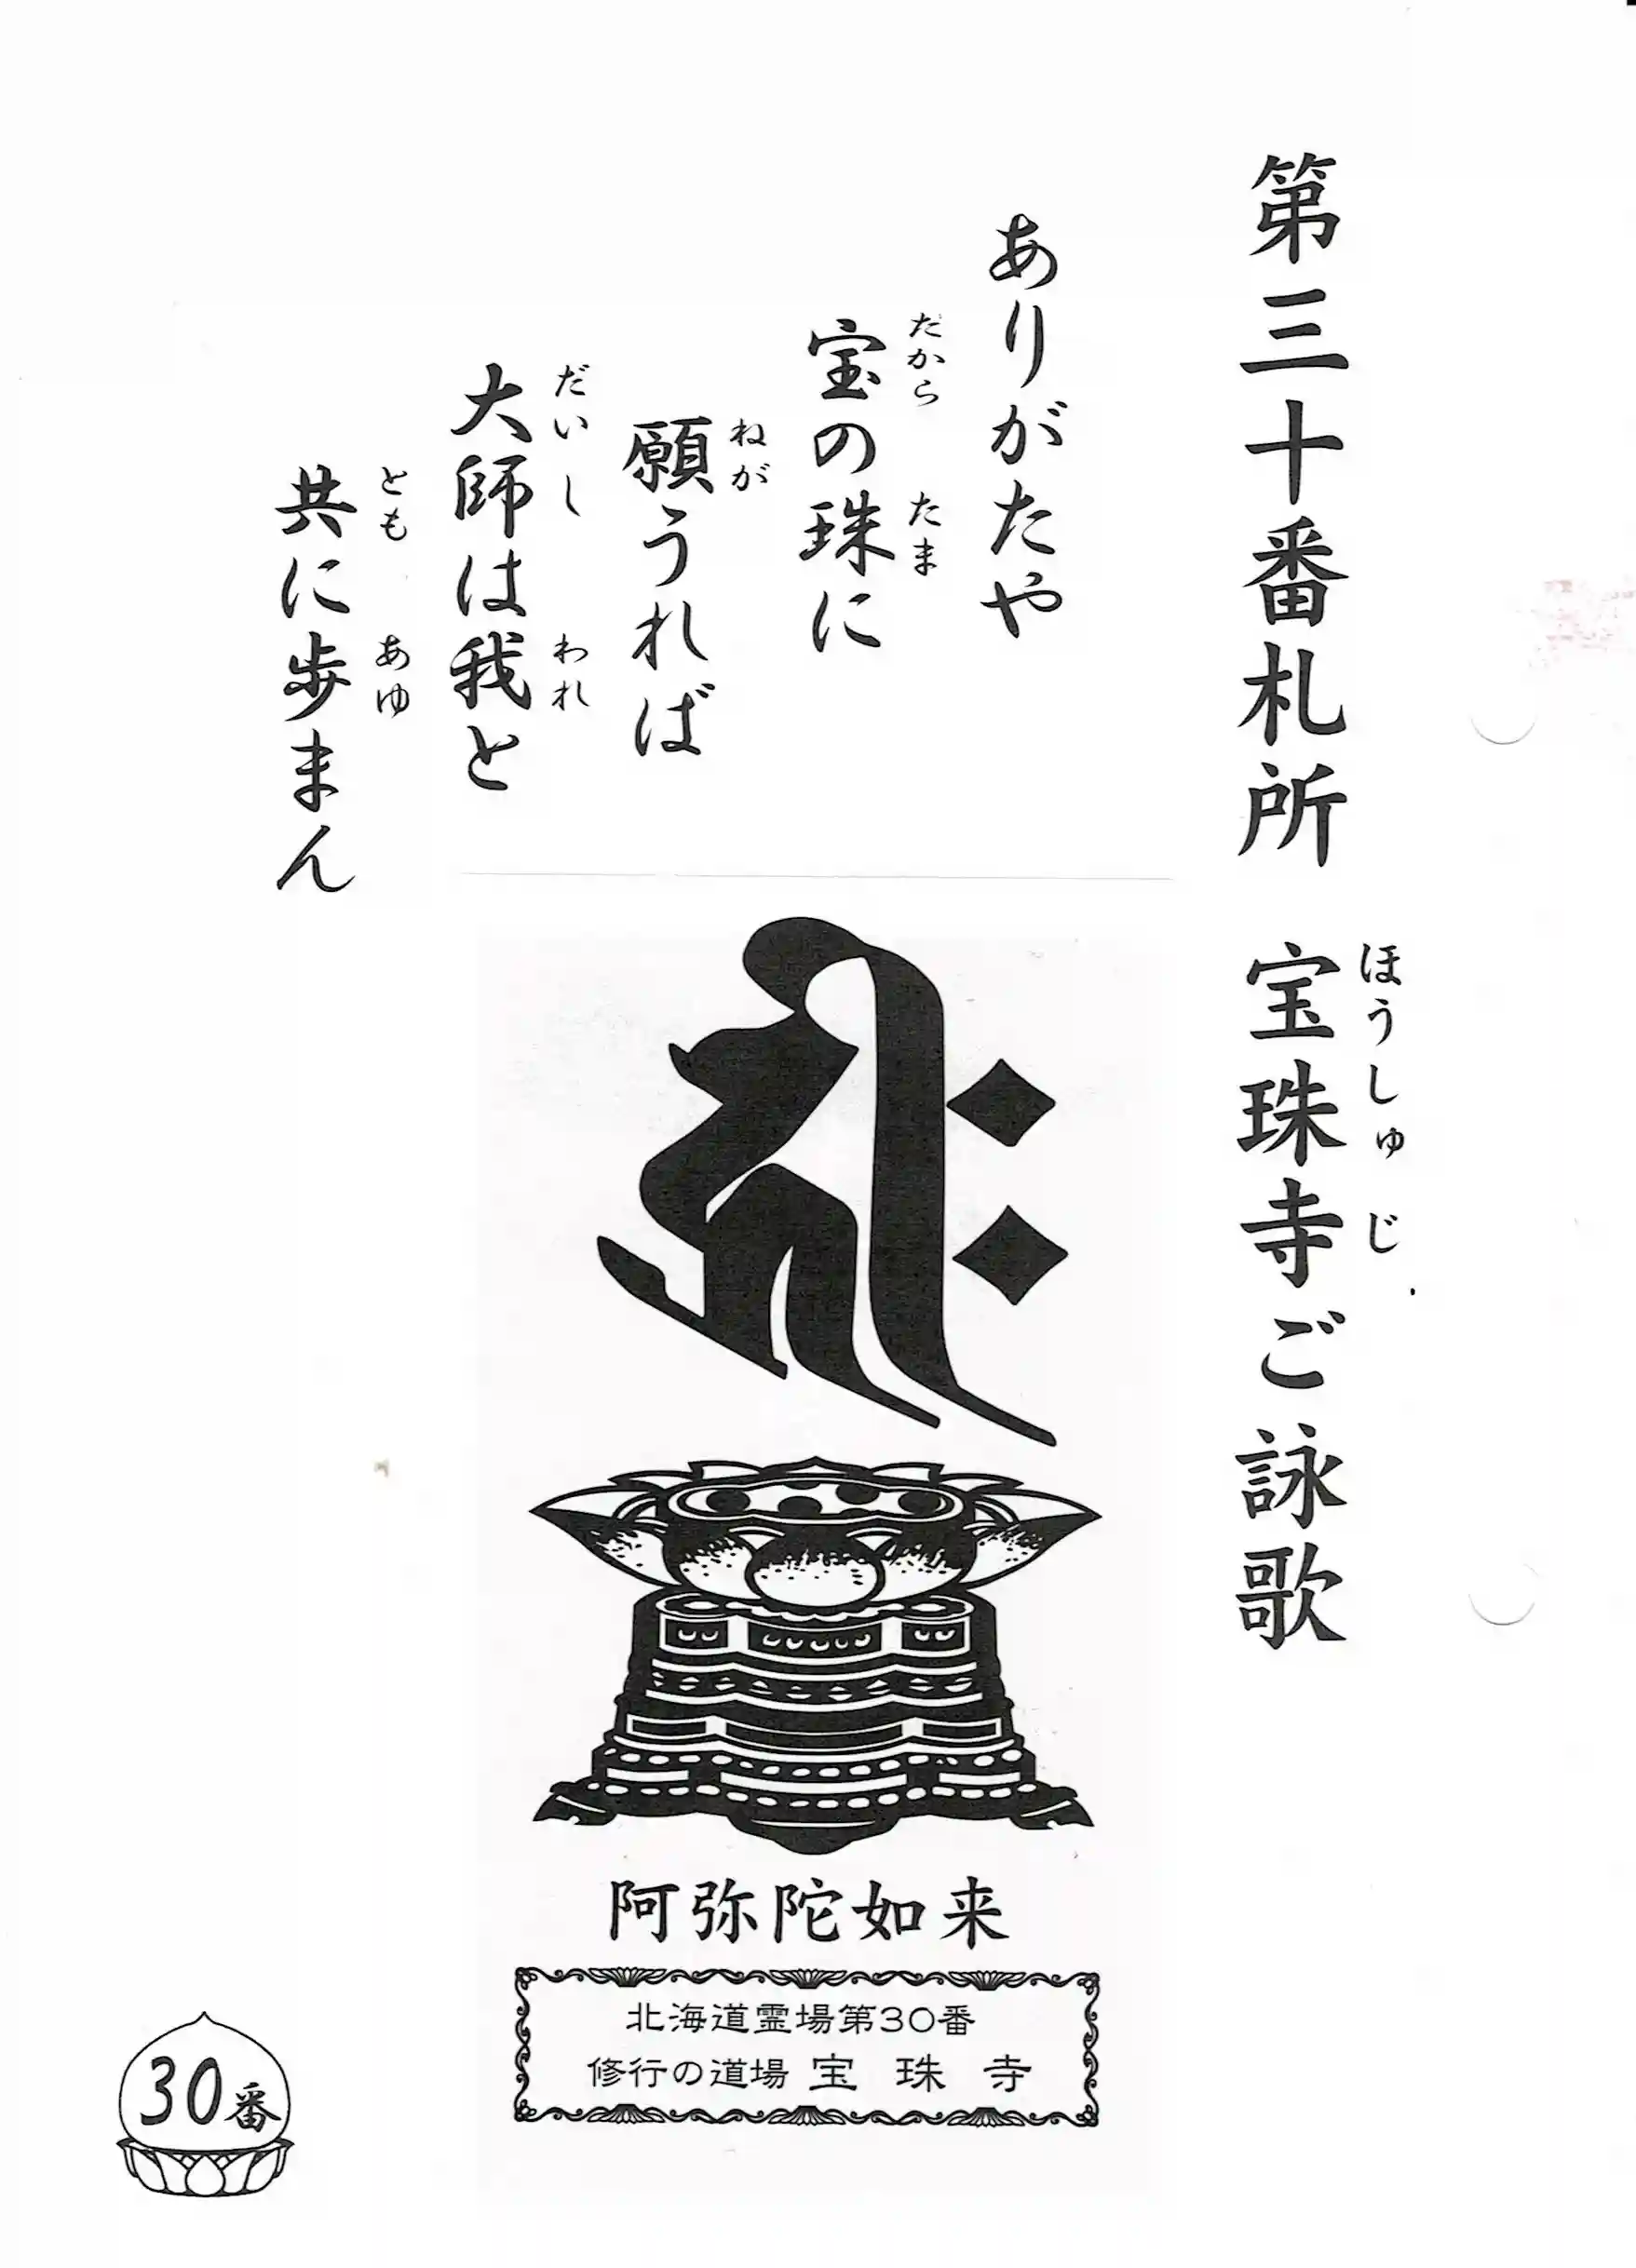 第三十番札所 宝珠寺ご詠歌
ほうしゅじ
ありがたや
宝の珠に
たから たま
願うれば
ねが
大師は我と
だいし われ
共に歩まん
とも あゆ
𑖮𑖿𑖨𑖱𑖾
阿弥陀如来
北海道霊場第30番
修行の道場 宝珠寺
30番